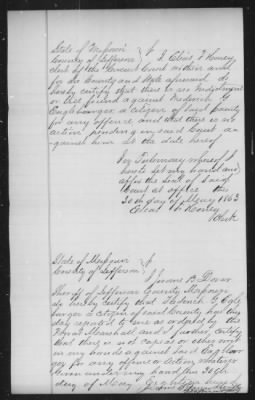 State of Missouri
County of Jefferson } I, Elias F Honey
clerk of the Circuit Court within and
for the County and State aforesaid do
hereby certify that there is no Indictment
or bill found against Frederick G
a citizen of said County
for any offence and that there is no
action pending in said Court a-
gainst him at the date hereof
In Testimony whereof I
hereto set my hand and
affix the seal of said
Court at office this
30th day of May 1863
Elias F Honey
Clerk
State of Missouri
County of Jefferson }
Sheriff of Jefferson County Missouri
do hereby certify that Frederick G
a citizen of said County has this
day reported to me as ordered by the
Marshall and I further certify
that there is no capias or other writ
in my hands against said
for any offence or action whatever
Given under my hand this 30th
day of May